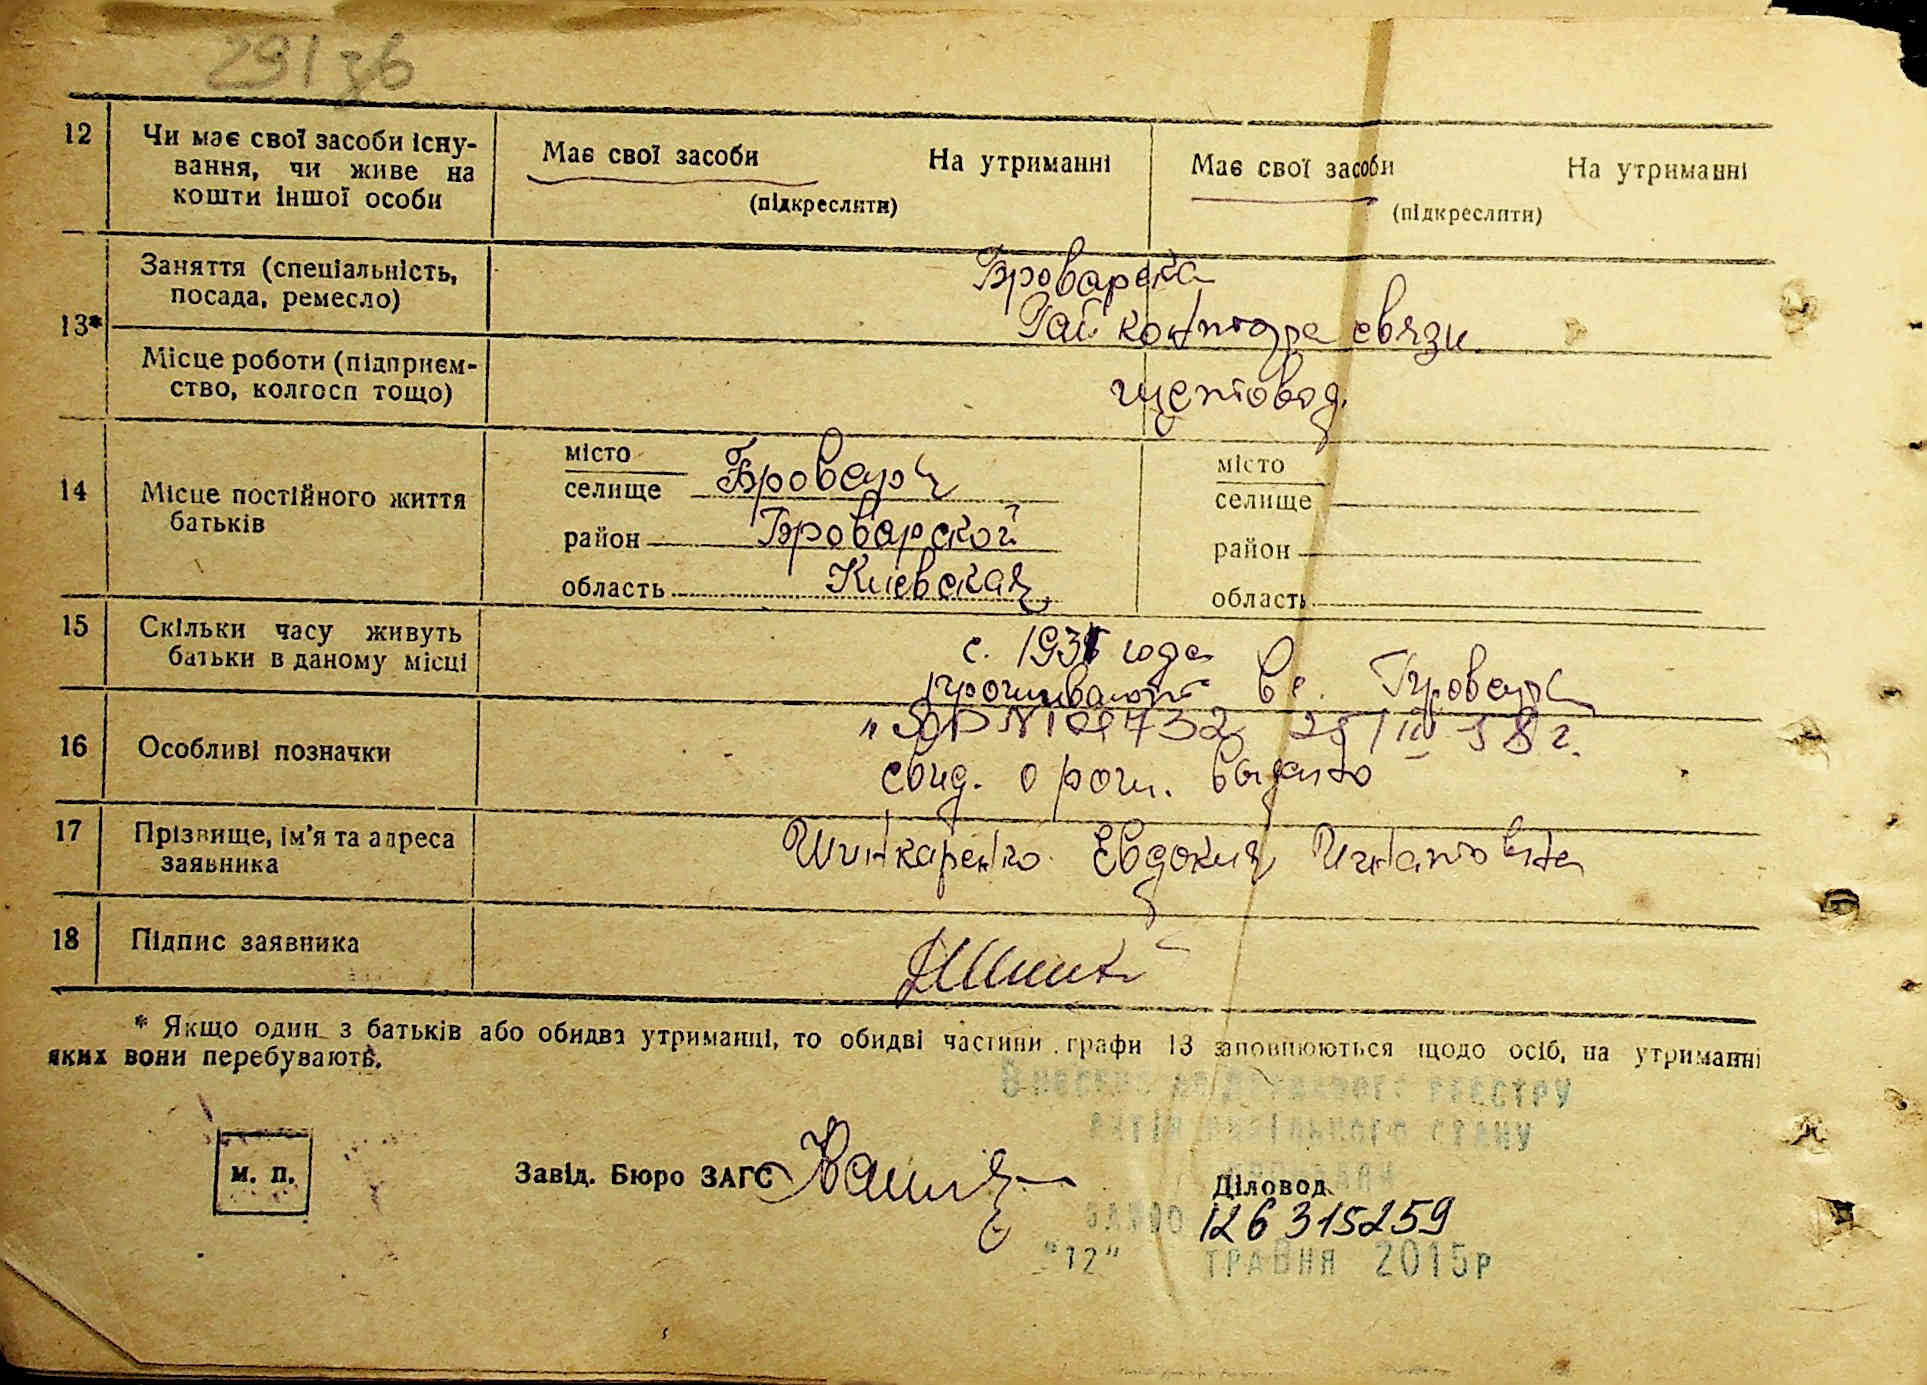 291зв
12 Чи має свої засоби існу-
вання, чи живе на
кошти іншої особи
Має свої засоби На утриманні
(підкреслити)
Має свої засоби На утриманні
(підкреслити)
13*
Заняття (спеціальність,
посада, ремесло)
Броварска
Рай контора связи
Місце роботи (підприєм-
ство, колгосп тощо)
щетовод.
14 Місце постійного життя
батьків
місто
селище Бровары
район Броварской
область Киевская
місто
селище
район
область
15 Скільки часу живуть
батьки в даному місці
с. 193 года
проживают в с. Бровары
16 Особливі позначки
58 г.
свид. о рож. выдано
17 Прізвище, ім'я та адреса
заявника
Шинкаренко Евдокия Игнатовна
18 Підпис заявника
* Якщо один з батьків або обидва утриманні, то обидві частини графи 13 заповнюються щодо осіб, на утриманні
яких вони перебувають.
Внесено до Державного реєстру
актів цивільного стану
громадян
м. п.
Завід. Бюро ЗАГС
Діловод
126315259
"12" травня 2015р